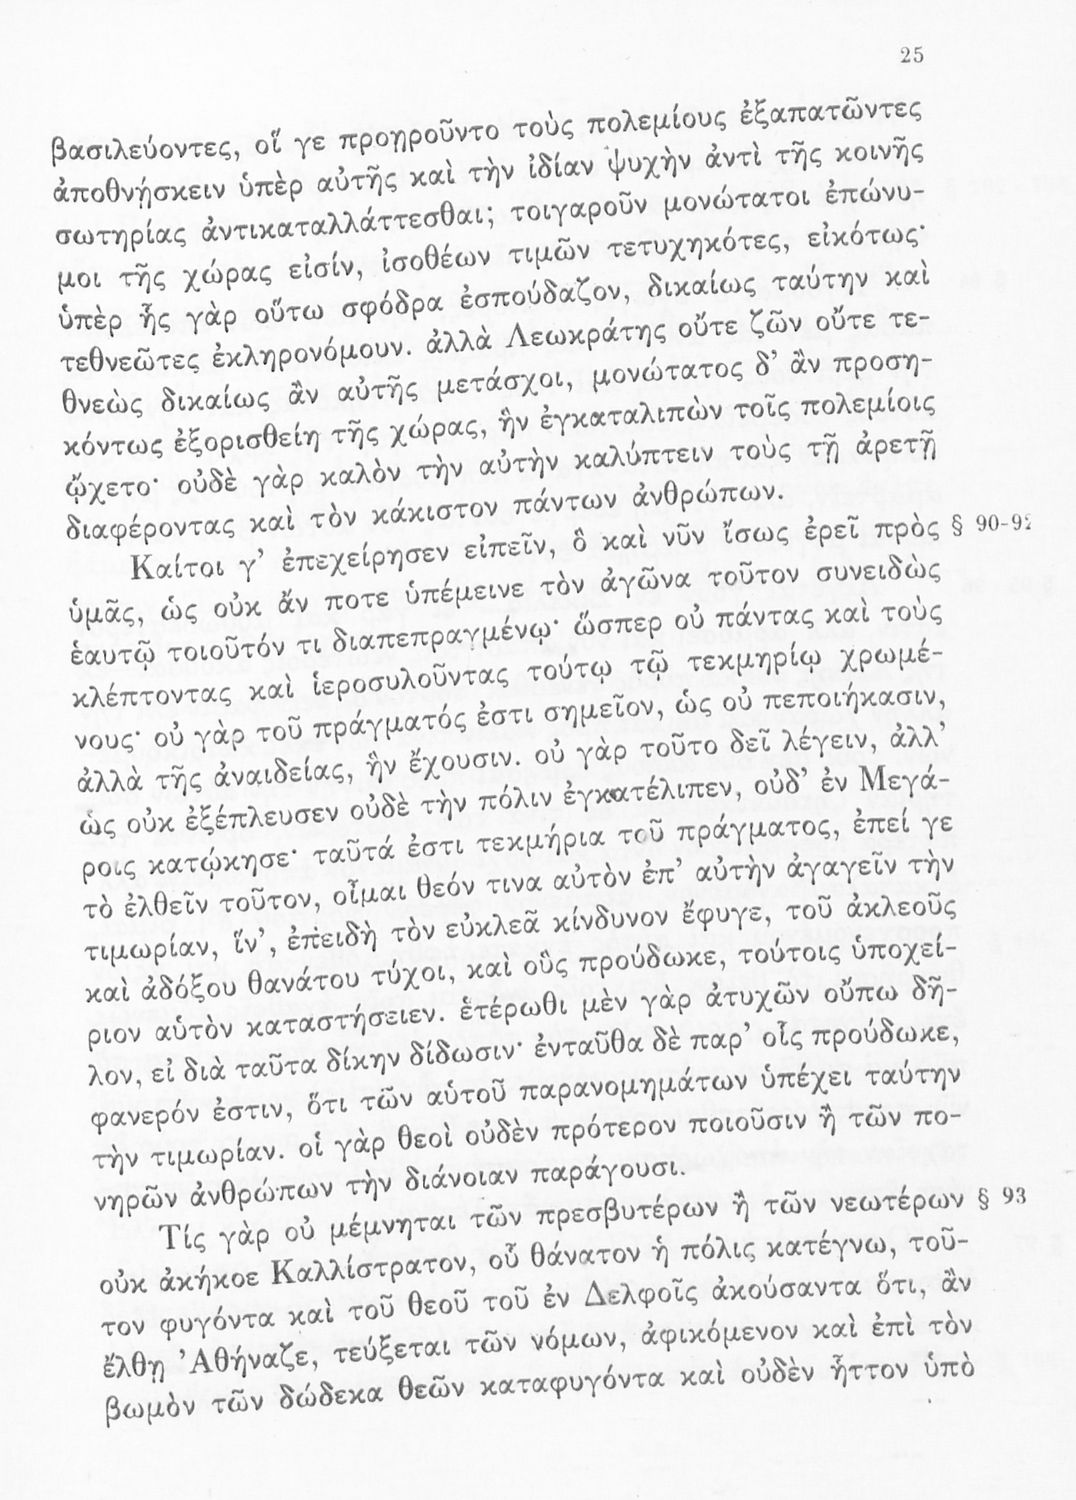 25
βασιλεύοντες, οἵ γε προῃροῦντο τοὺς πολεμίους ἐξαπατῶντες
ἀποθνῄσκειν ὑπὲρ αὐτῆς καὶ τὴν ἰδίαν ψυχὴν ἀντὶ τῆς κοινῆς
σωτηρίας ἀντικαταλλάττεσθαι; τοιγαροῦν μονώτατοι ἐπώνυ-
μοι τῆς χώρας εἰσίν, ἰσοθέων τιμῶν τετυχηκότες, εἰκότως·
ὑπὲρ ἧς γὰρ οὕτω σφόδρα ἐσπούδαζον, δικαίως ταύτην καὶ
τεθνεῶτες ἐκληρονόμουν. ἀλλὰ Λεωκράτης οὔτε ζῶν οὔτε τε-
θνεὼς δικαίως ἂν αὐτῆς μετάσχοι, μονώτατος δ’ ἂν προση-
κόντως ἐξορισθείη τῆς χώρας, ἣν ἐγκαταλιπὼν τοῖς πολεμίοις
ᾤχετο· οὐδὲ γὰρ καλὸν τὴν αὐτὴν καλύπτειν τοὺς τῇ ἀρετῇ
διαφέροντας καὶ τὸν κάκιστον πάντων ἀνθρώπων.
Καίτοι γ’ ἐπεχείρησεν εἰπεῖν, ὃ καὶ νῦν ἴσως ἐρεῖ πρὸς § 90-92
ὑμᾶς, ὡς οὐκ ἄν ποτε ὑπέμεινε τὸν ἀγῶνα τοῦτον συνειδὼς
ἑαυτῷ τοιοῦτόν τι διαπεπραγμένῳ· ὥσπερ οὐ πάντας καὶ τοὺς
κλέπτοντας καὶ ἱεροσυλοῦντας τούτῳ τῷ τεκμηρίῳ χρωμέ-
νους· οὐ γὰρ τοῦ πράγματός ἐστι σημεῖον, ὡς οὐ πεποιήκασιν,
ἀλλὰ τῆς ἀναιδείας, ἣν ἔχουσιν. οὐ γὰρ τοῦτο δεῖ λέγειν, ἀλλ’
ὡς οὐκ ἐξέπλευσεν οὐδὲ τὴν πόλιν ἐγκατέλιπεν, οὐδ’ ἐν Μεγά-
ροις κατῴκησε· ταῦτά ἐστι τεκμήρια τοῦ πράγματος, ἐπεί γε
τὸ ἐλθεῖν τοῦτον, οἶμαι θεόν τινα αὐτὸν ἐπ’ αὐτὴν ἀγαγεῖν τὴν
τιμωρίαν, ἵν’, ἐπειδὴ τὸν εὐκλεᾶ κίνδυνον ἔφυγε, τοῦ ἀκλεοῦς
καὶ ἀδόξου θανάτου τύχοι, καὶ οὓς προύδωκε, τούτοις ὑποχεί-
ριον αὑτὸν καταστήσειεν. ἑτέρωθι μὲν γὰρ ἀτυχῶν οὔπω δῆ-
λον, εἰ διὰ ταῦτα δίκην δίδωσιν· ἐνταῦθα δὲ παρ’ οἷς προύδωκε,
φανερόν ἐστιν, ὅτι τῶν αὑτοῦ παρανομημάτων ὑπέχει ταύτην
τὴν τιμωρίαν. οἱ γὰρ θεοὶ οὐδὲν πρότερον ποιοῦσιν ἢ τῶν πο-
νηρῶν ἀνθρώπων τὴν διάνοιαν παράγουσι.
Τίς γὰρ οὐ μέμνηται τῶν πρεσβυτέρων ἢ τῶν νεωτέρων § 93
οὐκ ἀκήκοε Καλλίστρατον, οὗ θάνατον ἡ πόλις κατέγνω, τοῦ-
τον φυγόντα καὶ τοῦ θεοῦ τοῦ ἐν Δελφοῖς ἀκούσαντα ὅτι, ἂν
ἔλθῃ Ἀθήναζε, τεύξεται τῶν νόμων, ἀφικόμενον καὶ ἐπὶ τὸν
βωμὸν τῶν δώδεκα θεῶν καταφυγόντα καὶ οὐδὲν ἧττον ὑπὸ